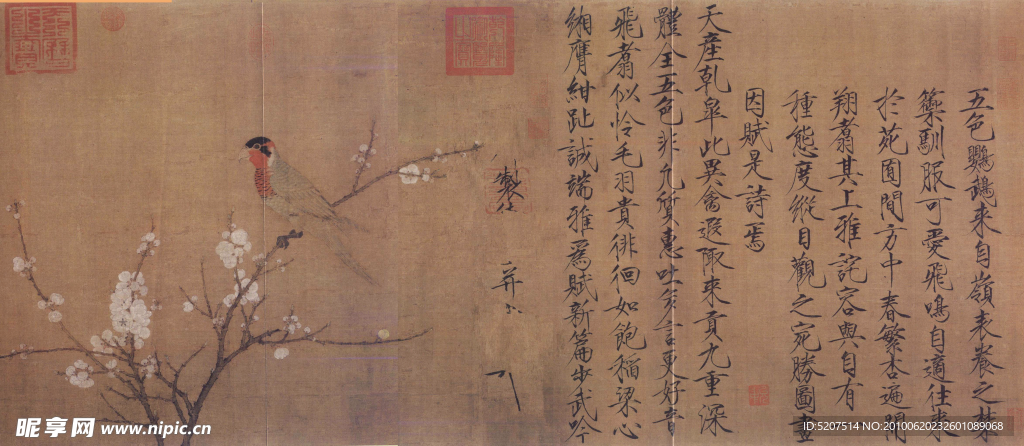 五色鸚鵡來自嶺表養之禁
籞馴服可愛飛鳴自適往來
於苑囿間方中春繁杏遍開
翔翥其上雅詫容與自有
種態度縱目觀之宛勝圖畫
因賦是詩焉
天產乾皋此異禽遐陬來貢九重深
體全五色非凡質惠吐多言更好音
飛翥似憐毛羽貴徘徊如飽稻粱心
緗膺紺趾誠端雅為賦新篇步武吟
製
并書
昵享网 www.nipic.cn
ID:5207514 NO:20100620232601089068